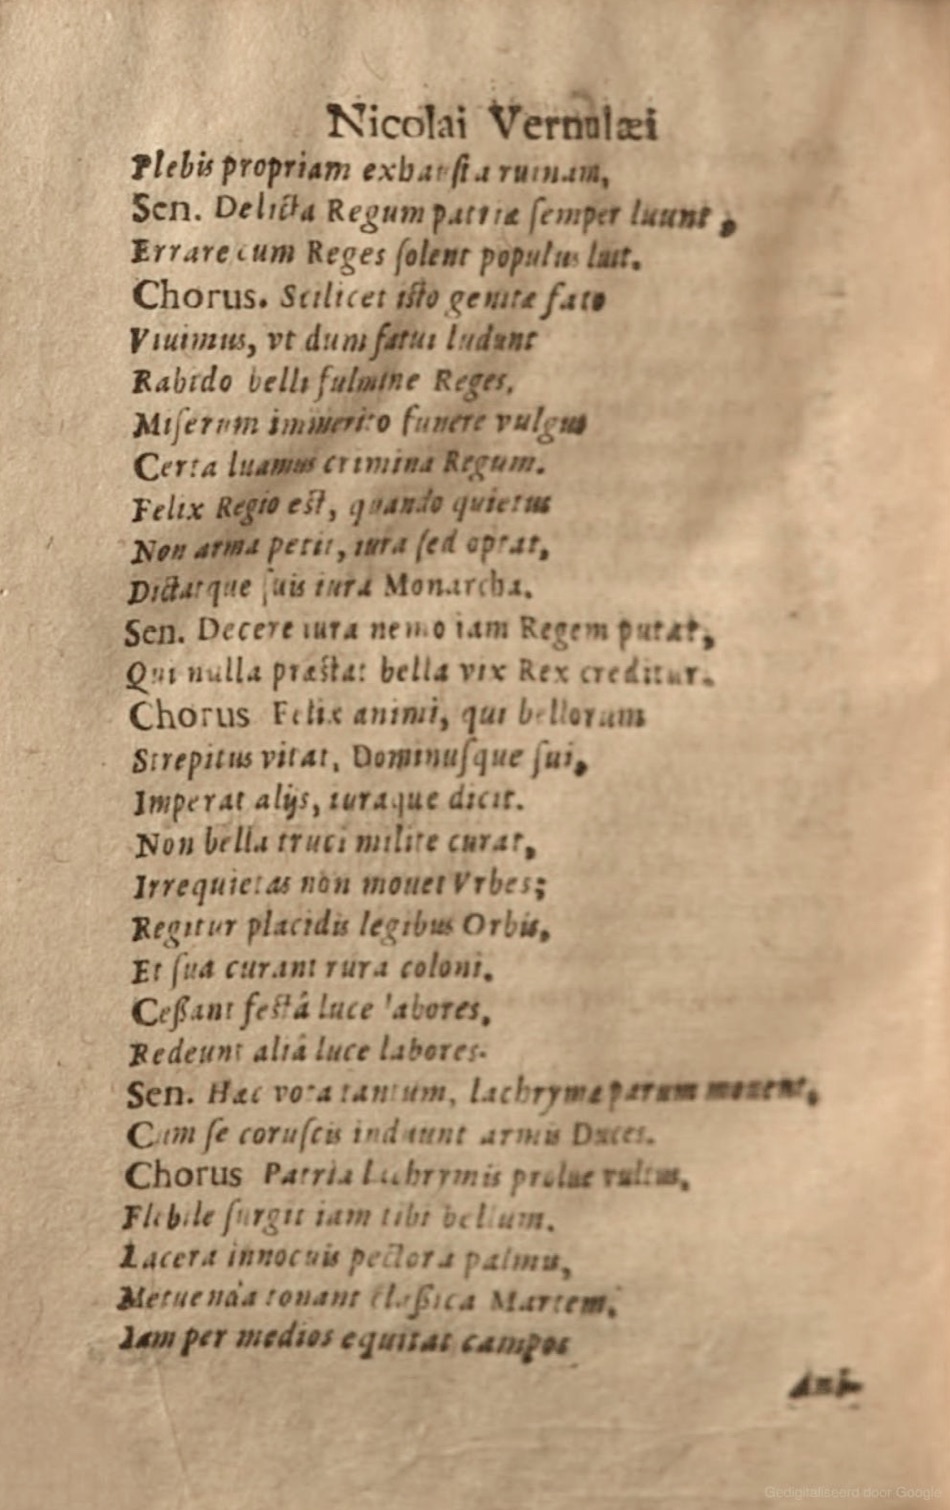 Nicolai Vernulæi
Plebis propriam exhausta ruinam,
Sen. Delicta Regum patriæ semper luunt,
Errare cum Reges solent populus luit.
Chorus. Scilicet isto genitæ fato
Viuimus, vt dum fatui ludunt
Rabido belli fulmine Reges,
Miserum immerito funere vulgus
Certa luamus crimina Regum.
Felix Regio est, quando quietus
Non arma petit, iura sed optat,
Dictatque suis iura Monarcha.
Sen. Decere iura nemo iam Regem putat,
Qui nulla præstat bella vix Rex creditur.
Chorus Felix animi, qui bellorum
Strepitus vitat, Dominusque sui,
Imperat alijs, iuraque dicit.
Non bella truci milite curat,
Irrequietas non mouet Vrbes;
Regitur placidis legibus Orbis,
Et sua curant rura coloni.
Ceßant festâ luce labores,
Redeunt aliâ luce labores.
Sen. Hæc vota tantum, lachrymæ parum mouent,
Cum se coruscis induunt armis Duces.
Chorus Patria lachrymis prolue vultus,
Flebile surgit iam tibi bellum.
Lacera innocuis pectora palmis,
Metuenda tonant claßica Martem.
Iam per medios equitat campos